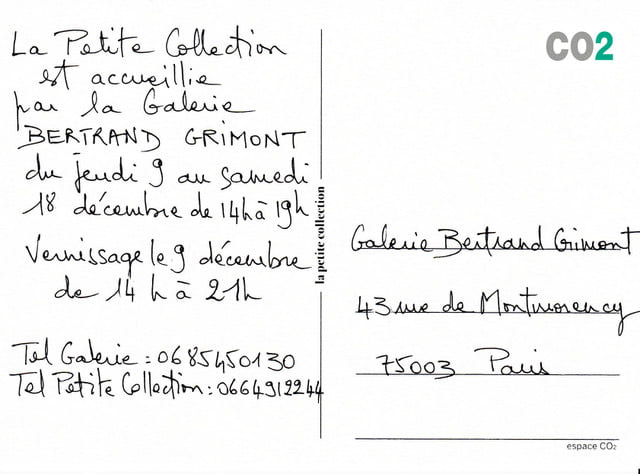 La Petite Collection
est accueillie
par la Galerie
BERTRAND GRIMONT
du jeudi 9 au samedi
18 décembre de 14h à 19h
Vernissage le 9 décembre
de 14 h à 21h
Tel Galerie : 0685450130
Tel Petite Collection : 0664912244
la petite collection
CO2
Galerie Bertrand Grimont
43 rue de Montmorency
75003 Paris
espace CO2